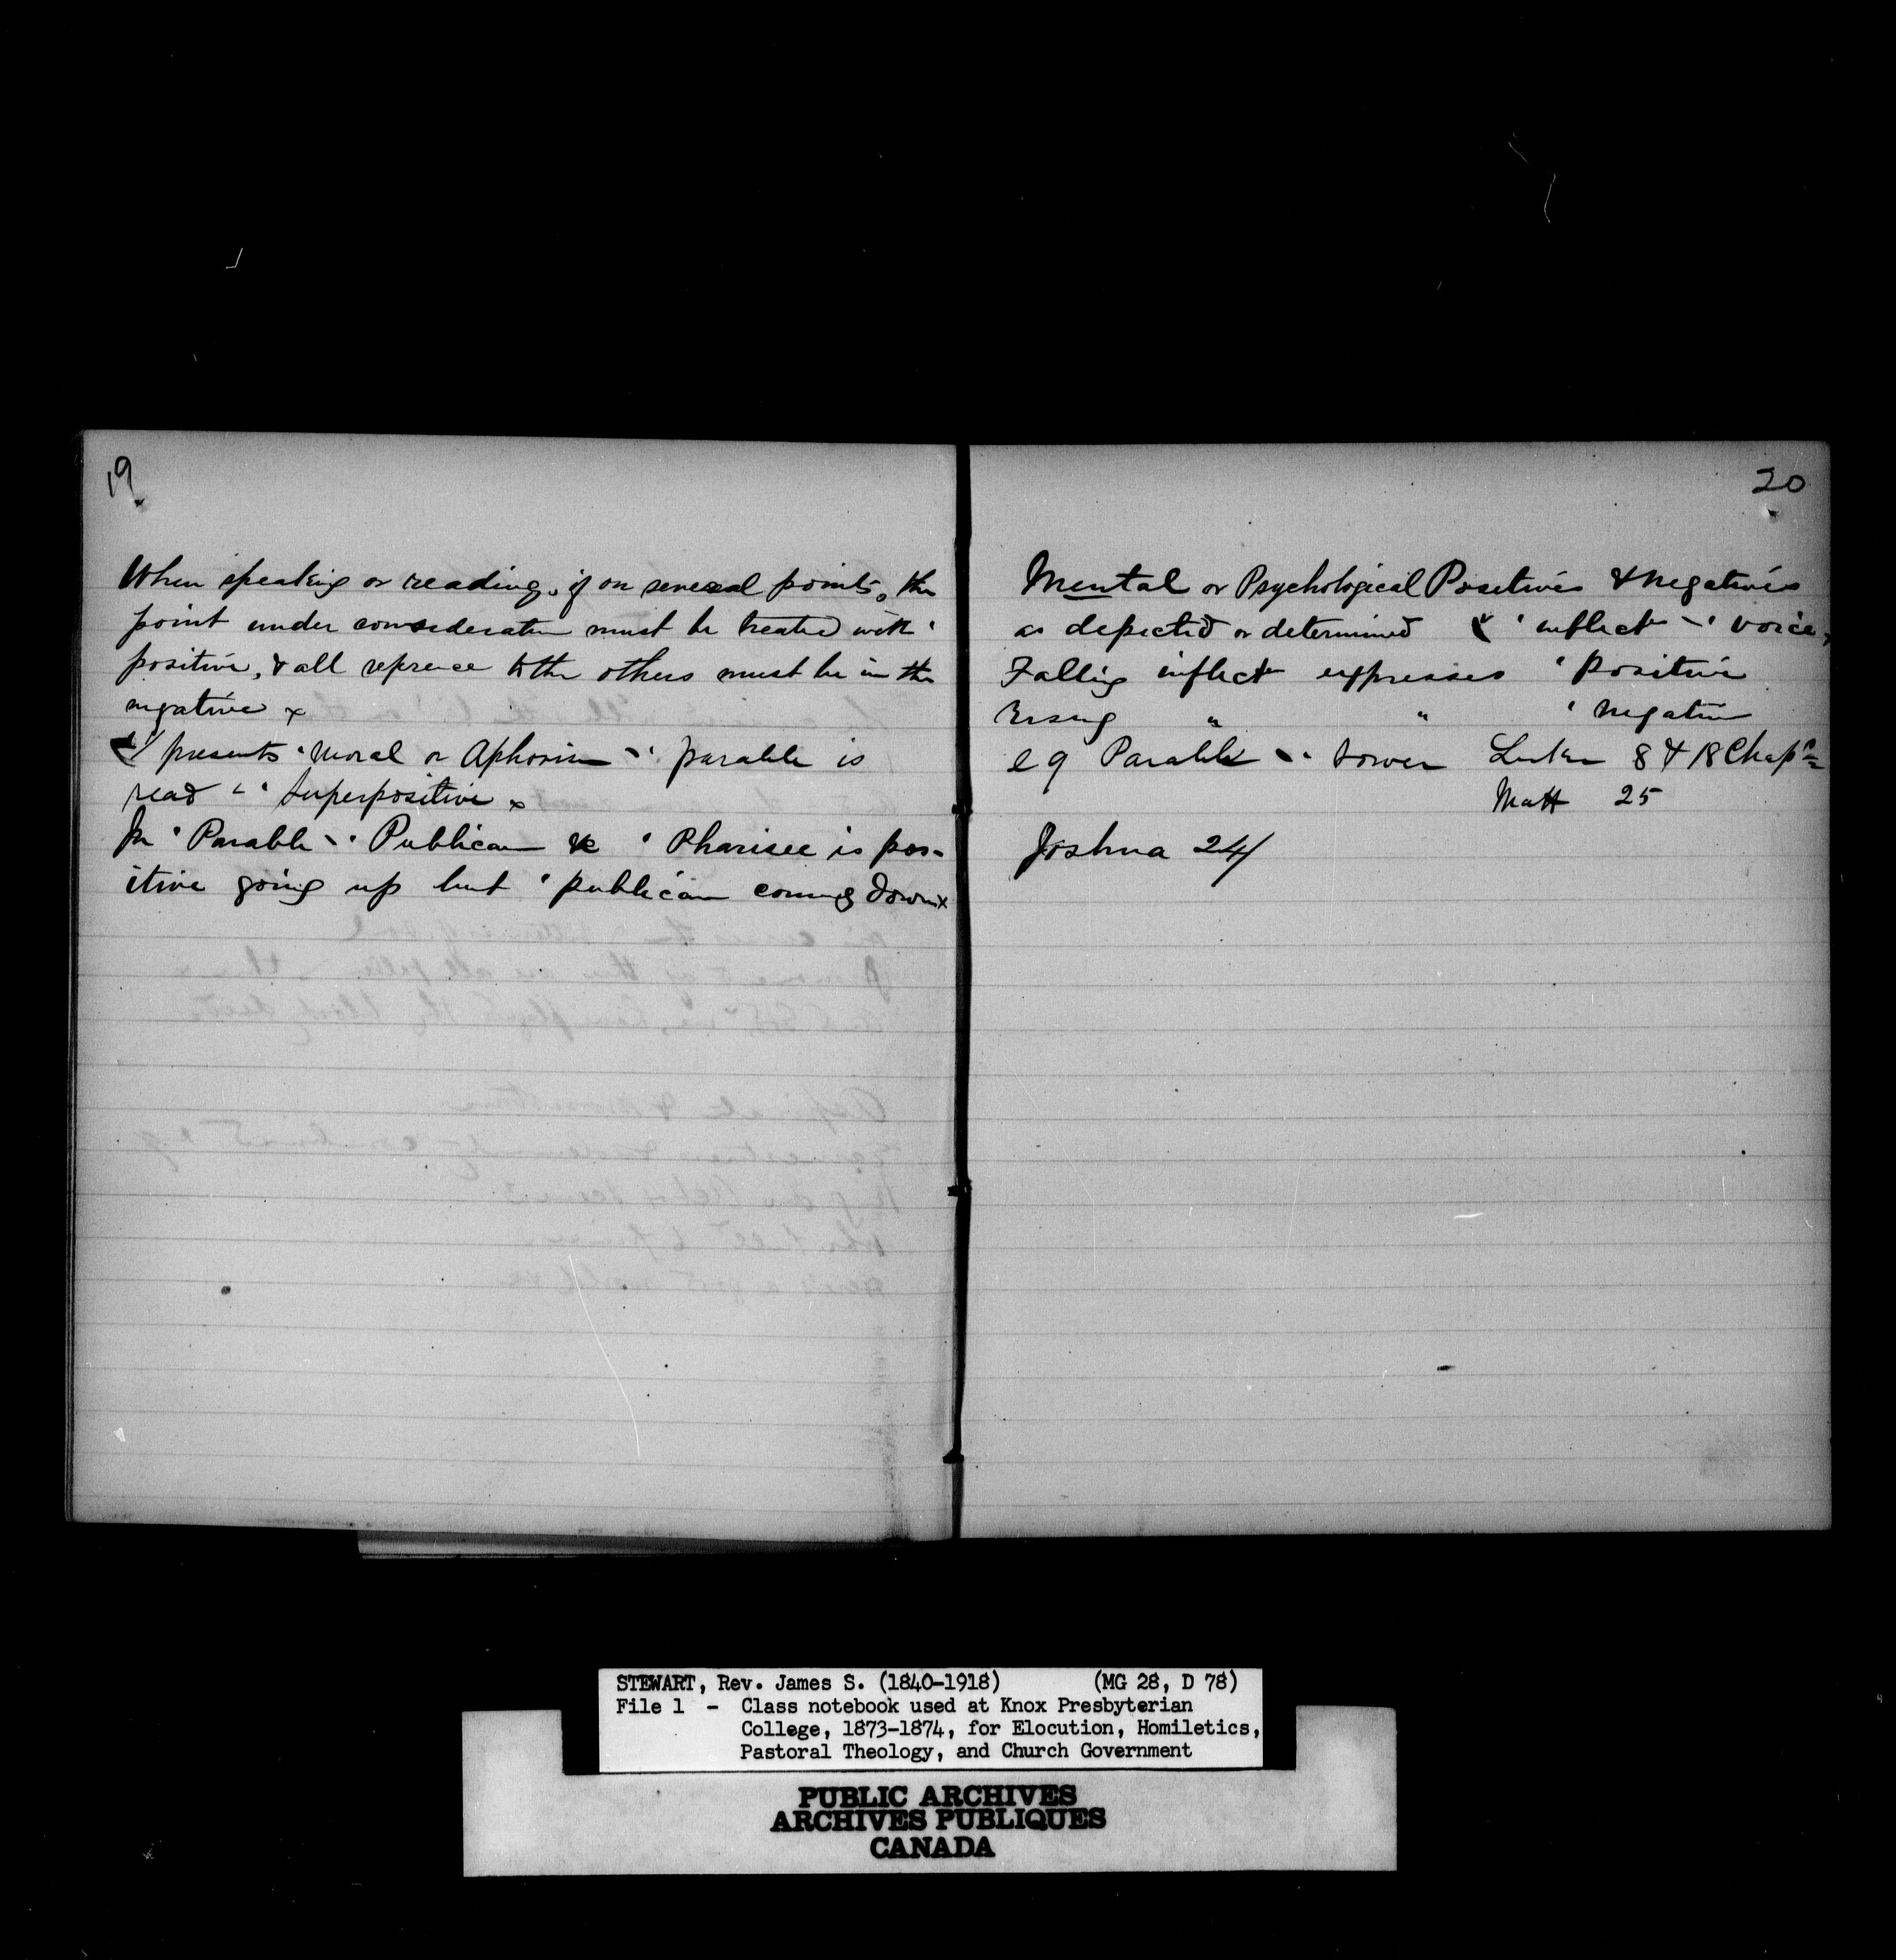 19
When speaking or reading, if on several points, the
point under consideratn must be treated with '
positive, & all refrence to the others must be in the
negative x
presents ' Moral or Aphorism ' parable is
read ' Superpositive x
In ' Parable ' Publican & ' Pharisee is pos-
itive going up but ' publican coming down x
20
Mental or Psychological Positives & Negatives
as depicted or determined ' inflectn ' voice
Falling inflectn expresses ' Positive
Rising " " ' Negative
eg Parable ' Sower Luke 8 & 18 Chaps
Matt 25
Joshua 24
STEWART, Rev. James S. (1840-1918) (MG 28, D 78)
File 1 - Class notebook used at Knox Presbyterian
College, 1873-1874, for Elocution, Homiletics,
Pastoral Theology, and Church Government
PUBLIC ARCHIVES
ARCHIVES PUBLIQUES
CANADA